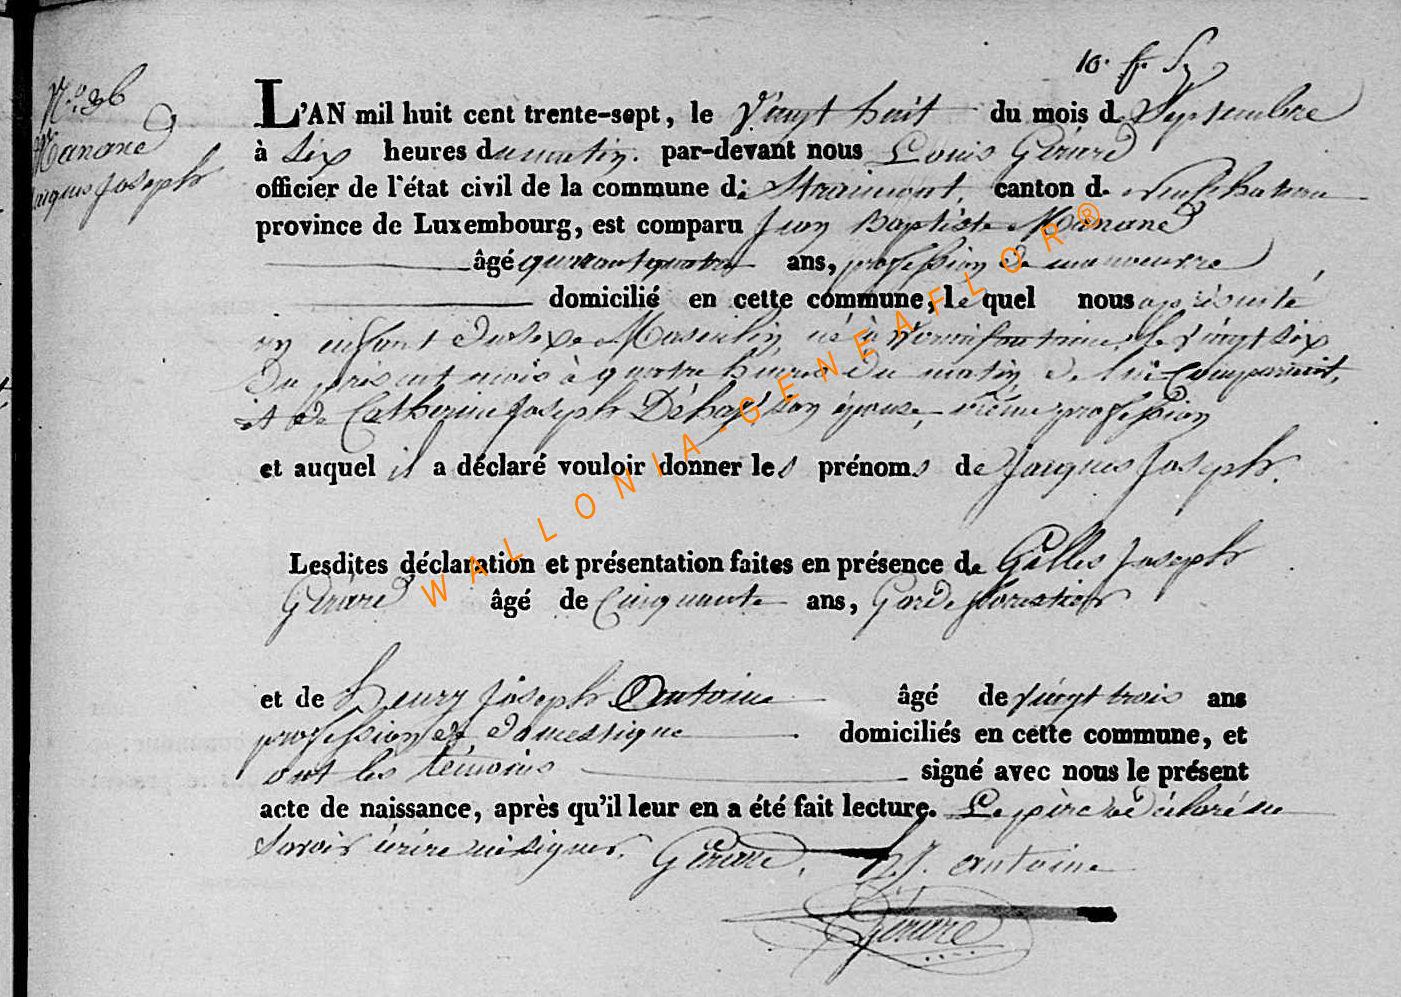 N.o 36
Manand
Jacques Joseph
10.
L'AN mil huit cent trente-sept, le Vingt huit du mois de Septembre
à Six heures du matin. par-devant nous Louis Gérard
officier de l'état civil de la commune d: Straimont, canton d. Neufchateau
province de Luxembourg, est comparu Jean Baptiste Manand
âgé quarant quatre ans, profession de manoeuvre
domicilié en cette commune, le quel nous a présenté
un enfant du sexe Masculin né à le vingt six
Du présent mois à quatre heures du matin, de lui Comparant,
et de Catherine Joseph Déhaÿ son épouse, même profession
et auquel il a déclaré vouloir donner les prénoms de Jacques Joseph.
Lesdites déclaration et présentation faites en présence de Gilles Joseph
Gérard âgé de Cinquante ans, Garde forestier
et de Henry Joseph Antoine âgé de vingt trois ans
profession de domestique domiciliés en cette commune, et
ont les témoins signé avec nous le présent
acte de naissance, après qu'il leur en a été fait lecture. Le père a déclaré ne
Savoir écrire ni signer. Gérard. H J. antoine
Gérard
WALLONIA-GENEAFLOR®